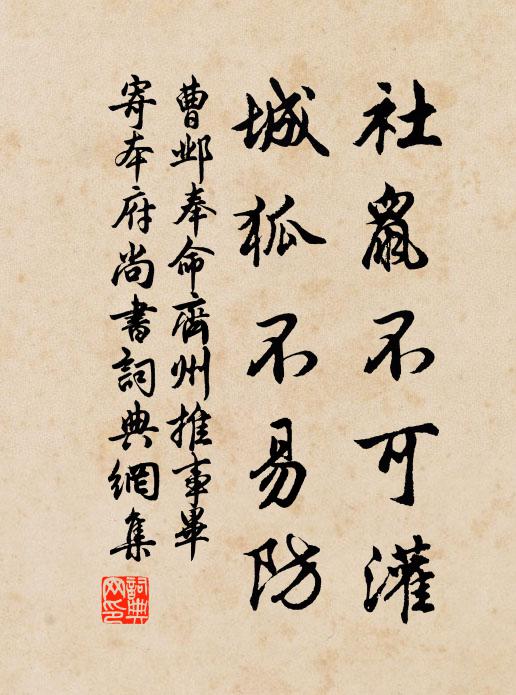 社鼠不可灌
城狐不易防
曹邺奉命齊州推事畢
寄本府尚書詞典網集
詞典
网印